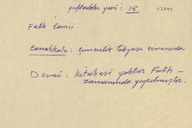 paftadaki yeri: 18. 
Fatih Camii
Çanakkale: Çimenlik Tabyası civarında
Devri: Kitabesi yoktur Fatih -
zamanında yapılmıştır.